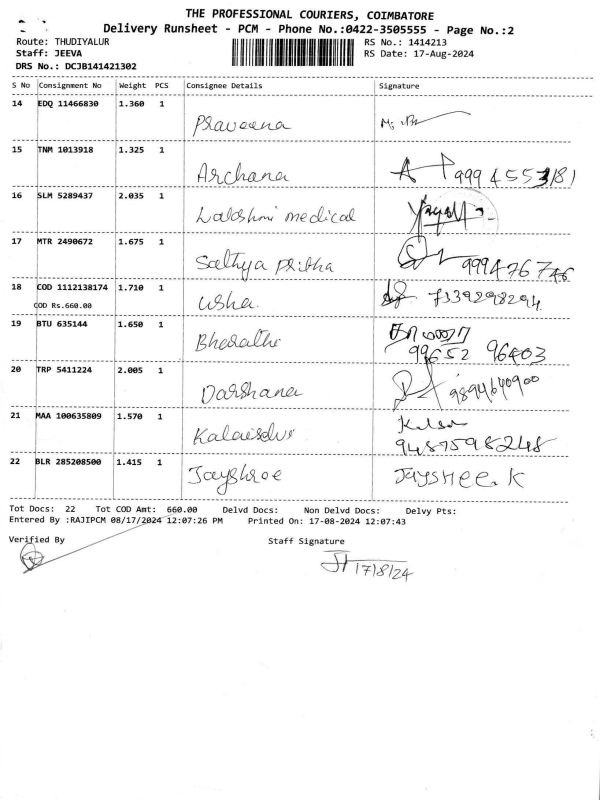 THE PROFESSIONAL COURIERS, COIMBATORE
Delivery Runsheet - PCM - Phone No.:0422-3505555 - Page No.:2
Route: THUDIYALUR RS No.: 1414213
Staff: JEEVA RS Date: 17-Aug-2024
DRS No.: DCJB141421302
S No Consignment No Weight PCS Consignee Details Signature
14 EDQ 11466830 1.360 1
Praveena
15 TNM 1013918 1.325 1
Archana 9994553181
16 SLM 5289437 2.035 1
Lakshmi medical
17 MTR 2490672 1.675 1
Sathya pritha 999476746
18 COD 1112138174 1.710 1
COD Rs.660.00 usha. 7339298294
19 BTU 635144 1.650 1
Bharathi 99652 96403
20 TRP 5411224 2.005 1
Darshana 9894640900
21 MAA 100635809 1.570 1
Kalaiselvi 9487598248
22 BLR 285208500 1.415 1
Jayshree JAYSHEE.K
Tot Docs: 22 Tot COD Amt: 660.00 Delvd Docs: Non Delvd Docs: Delvy Pts:
Entered By :RAJIPCM 08/17/2024 12:07:26 PM Printed On: 17-08-2024 12:07:43
Verified By Staff Signature
17/8/24